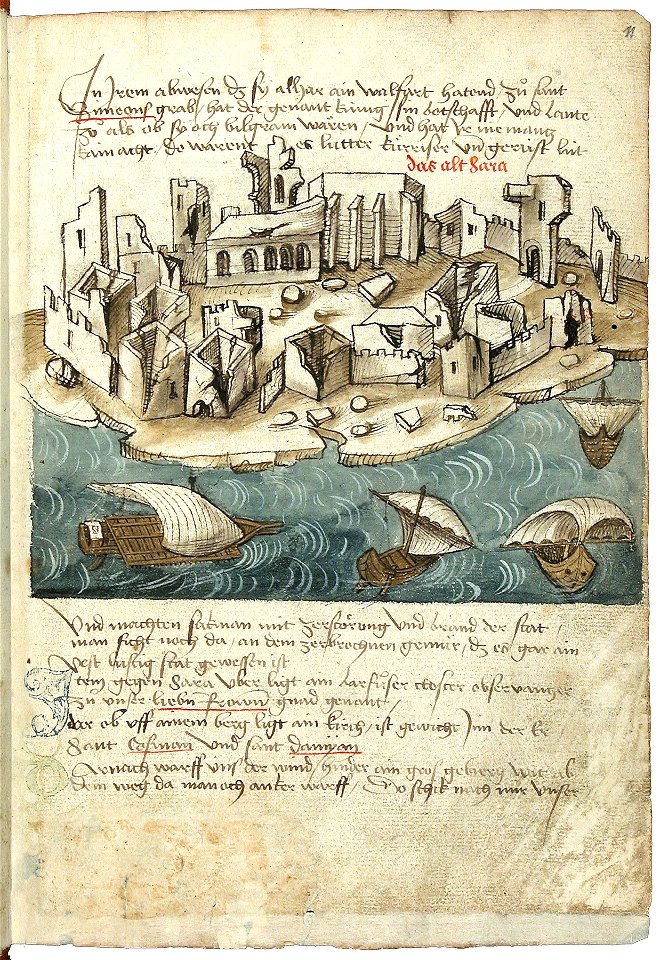 11
In Irem abwesen dz sy alhar ain walfart hatend zů sant
Simeons grab / hat der genant küng sin botschafft / und lante
zů als ob sy och bilgram wären / und hat Ir niemantz
kain acht / do warent es lutter kürriser und gerüst lüt
das alt Sara
Und machten satman mit zerstörung und brand der stat /
man sicht noch da / an dem zerbrochnen gemür / dz es gar ain
vest lustig stat gewessen ist
Item gegen Sara uber ligt ain barfůser closter observantzer
zů unser lieben frowen gnad genant /
dar ob uff ainem berg ligt ain kirch / ist gewicht Inn der Er
Sant Cosman und sant Damian
Darnach warff uns der wind / hinder ain gros gebierg wit ab
dem weg da man och ancker warff / Do schick nach mir unser